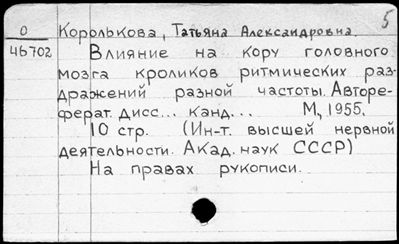 5
О Королькова, Татьяна Александровна.
46702 Влияние на кору головного
мозга кроликов ритмических раз-
дражений разной частоты. Авторе-
ферат. дисс... канд... М., 1955.
10 стр. (Ин-т. высшей нервной
деятельности. Акад. наук СССР)
На правах рукописи.